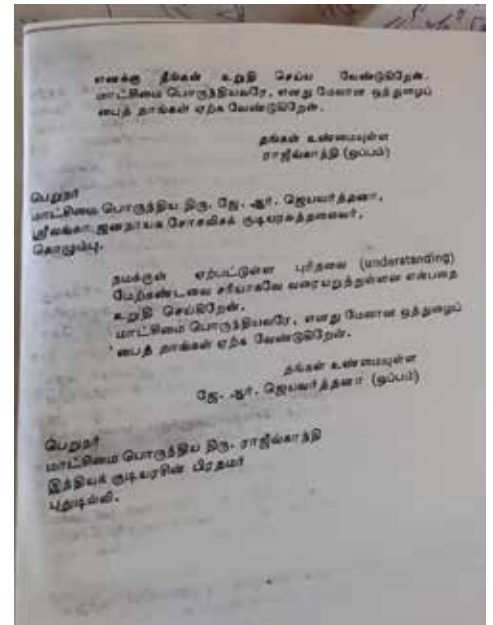 எனக்கு நீங்கள் உறுதி செய்ய வேண்டுகிறேன்.
மாட்சிமை பொருந்தியவரே, எனது மேலான ஒத்துழைப்
பைத் தாங்கள் ஏற்க வேண்டுகிறேன்.
தங்கள் உண்மையுள்ள
ராஜீவ்காந்தி (ஒப்பம்)
பெறுநர்
மாட்சிமை பொருந்திய திரு. ஜே. ஆர். ஜெயவர்த்தனா,
ஸ்ரீலங்கா ஜனநாயக சோசலிசக் குடியரசுத்தலைவர்,
கொழும்பு.
நமக்குள் ஏற்பட்டுள்ள புரிதலை (understanding)
மேற்கண்டவை சரியாகவே வரையறுத்துள்ளன என்பதை
உறுதி செய்கிறேன்.
மாட்சிமை பொருந்தியவரே, எனது மேலான ஒத்துழைப்
பைத் தாங்கள் ஏற்க வேண்டுகிறேன்.
தங்கள் உண்மையுள்ள
ஜே. ஆர். ஜெயவர்த்தனா (ஒப்பம்)
பெறுநர்
மாட்சிமை பொருந்திய திரு. ராஜீவ்காந்தி
இந்தியக் குடியரசின் பிரதமர்
புதுடில்லி.